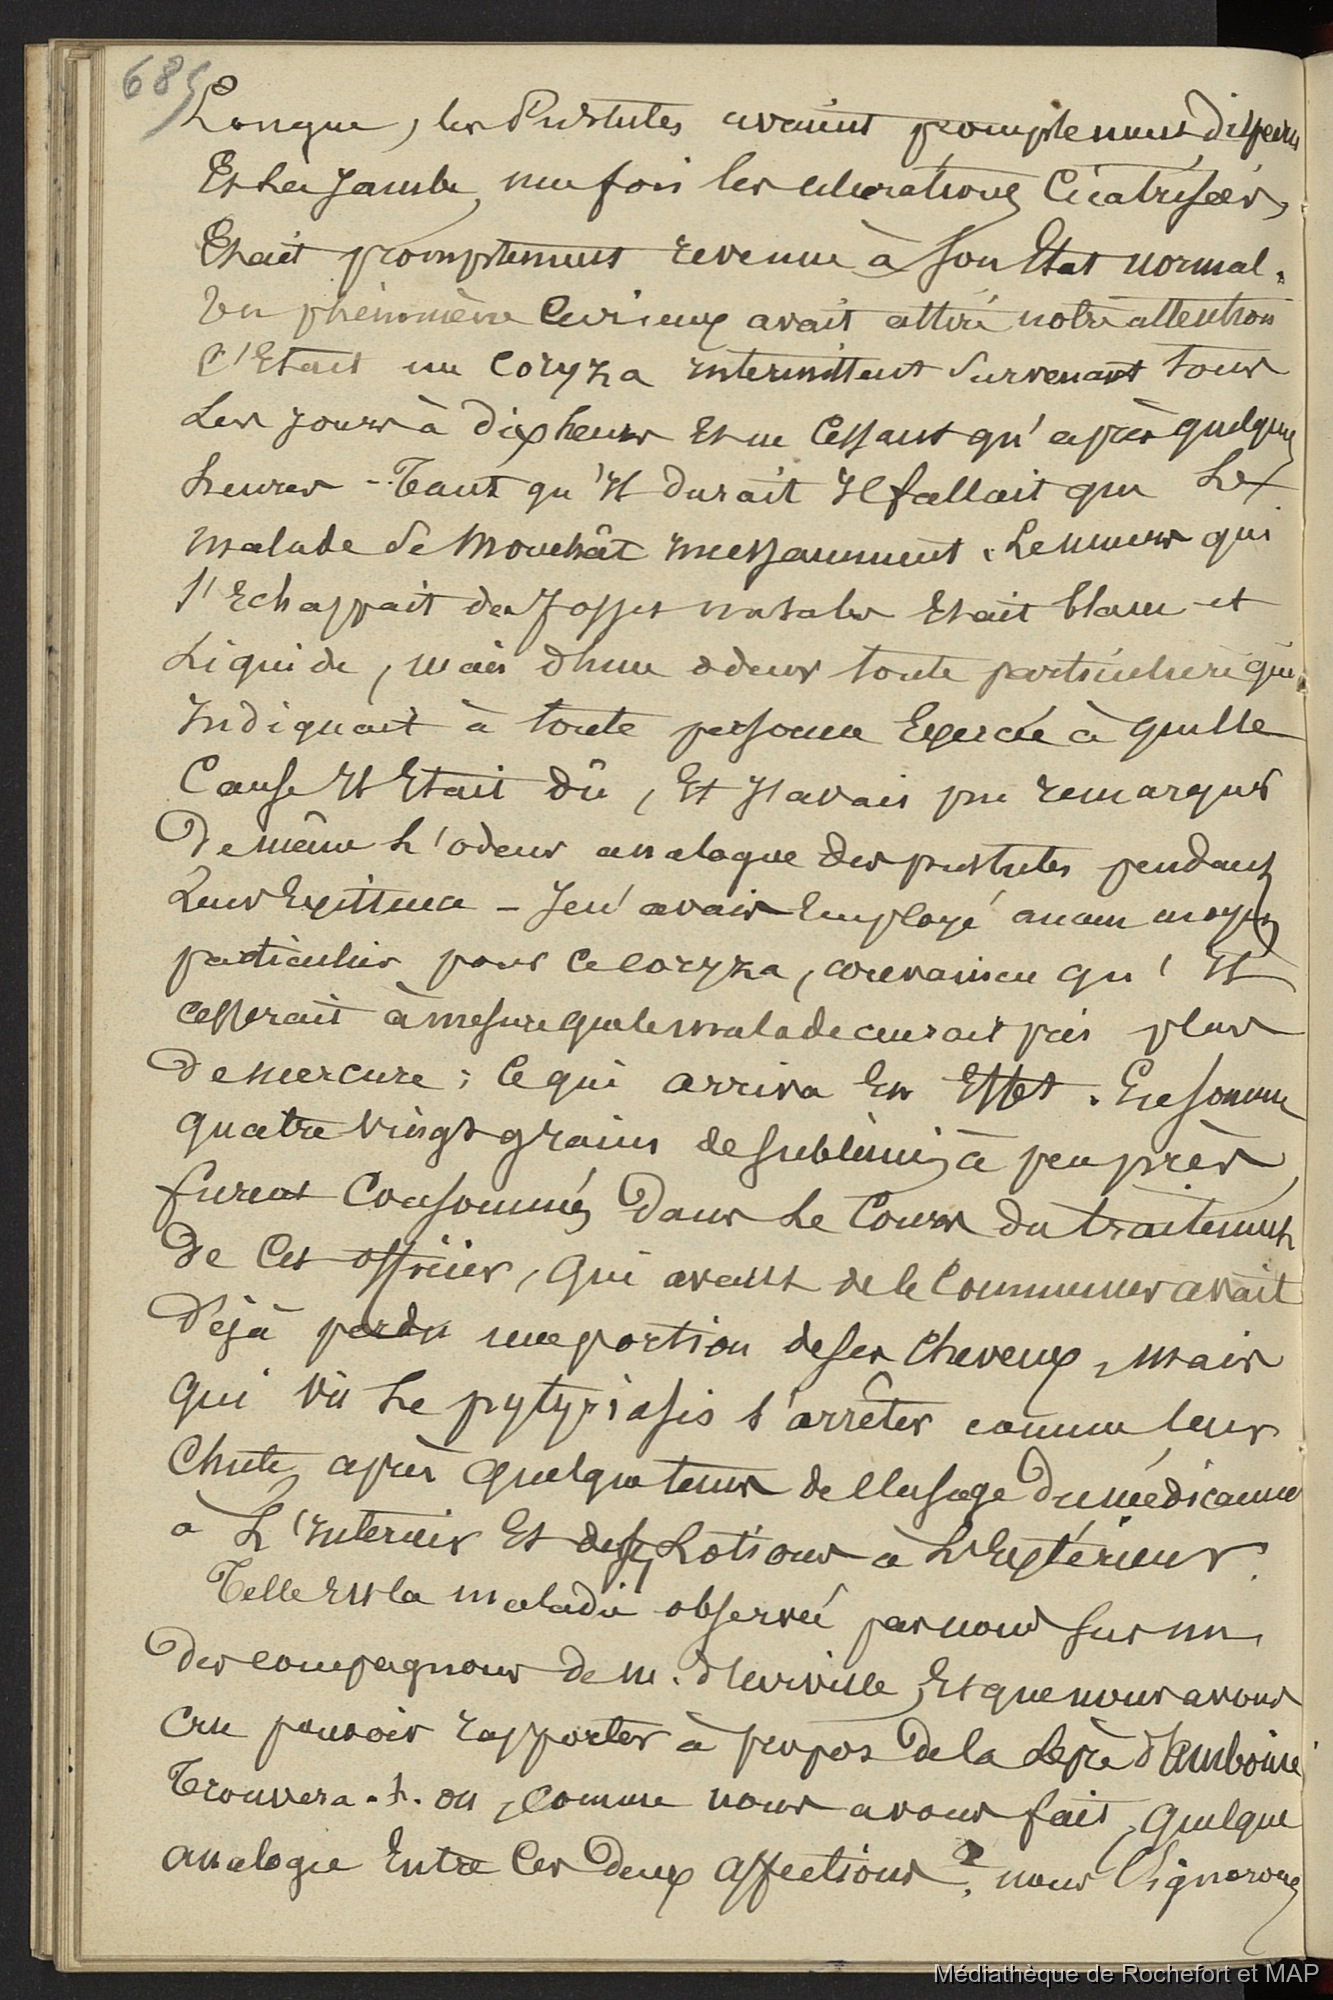 685
Longue, les Pustules avaient promptement disparu
Et la jambe, une fois les ulcérations Cicatrisées,
Etait promptement revenue à son Etat normal.
Un phénomène Curieux avait attiré notre attention
C'Etait un Coryza intermittent Survenant tous
Les jours à dix heures et ne Cessant qu'après quelques
heures - Tant qu'il durait il fallait que Le
malade Se Mouchât incessamment. Le mucus qui
s'Echappait des fosses nasales Etait blanc et
Liquide, mais d'une odeur toute particulière qui
Indiquait à toute personne Exercée à quelle
Cause il Etait dû, Et j'avais pu remarquer
De même L'odeur analogue des pustules pendant
Leur Existence - Je n'avais Employé aucun moyen
particulier pour ce coryza, convaincu qu'il
cesserait à mesure que le malade aurait pris plus
De mercure; Ce qui arriva En Effet. En somme
quatre vingt grains de sublimé à peu près
furent Consommés Dans Le Cours du traitement
de Cet officier, qui avant de le Commencer avait
Déjà perdu une portion de ses cheveux, mais
qui vit Le pytyriasis s'arrêter comme leur
Chute, après quelque tems de l'usage Du médicament
à L'Intérieur Et des Lotions à L'Extérieur.
Telle Est la maladie observée par nous sur un
Des compagnons de M. d'Urville, Et que nous avons
Cru pouvoir rapporter à propos De la Lèpre d'Amboine
Trouvera-t-on, comme nous avons fait, quelque
analogie Entre Ces Deux affections? nous L'ignorons
Médiathèque de Rochefort et MAP